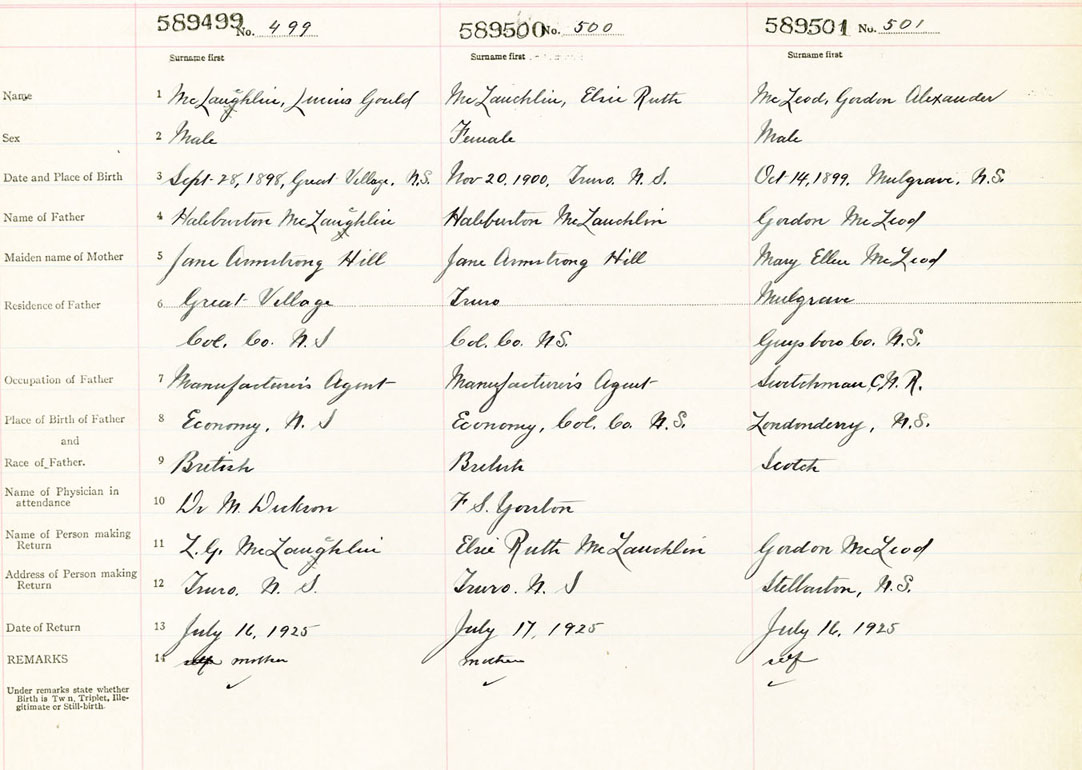 589499 No. 499 589500 No. 500 589501 No. 501
Surname first Surname first Surname first
Name 1 McLaughlin, Lucius Gould McLauchlin, Elsie Ruth McLeod, Gordon Alexander
Sex 2 Male Female Male
Date and Place of Birth 3 Sept-28, 1898, Great Village, N.S. Nov 20, 1900, Truro, N.S. Oct 14, 1899, Mulgrave, N.S.
Name of Father 4 Haleburton McLaughlin Haleburton McLauchlin Gordon McLeod
Maiden name of Mother 5 Jane Armstrong Hill Jane Armstrong Hill Mary Ellen McLeod
Residence of Father 6 Great Village Truro Mulgrave
Col. Co. N.S Col. Co. N.S. Guysboro Co. N.S.
Occupation of Father 7 Manufacturer's Agent Manufacturer's Agent Switchman C.N.R.
Place of Birth of Father 8 Economy, N.S Economy, Col. Co. N.S. Londonderry, N.S.
and
Race of Father. 9 British British Scotch
Name of Physician in attendance 10 Dr M. Dickson F S. Yorston
Name of Person making Return 11 L.G. McLaughlin Elsie Ruth McLauchlin Gordon McLeod
Address of Person making Return 12 Truro. N.S. Truro. N.S Stellarton, N.S.
Date of Return 13 July 16, 1925 July 17, 1925 July 16, 1925
REMARKS 14 self mother mother self
Under remarks state whether
Birth is Twin, Triplet, Ille-
gitimate or Still-birth.